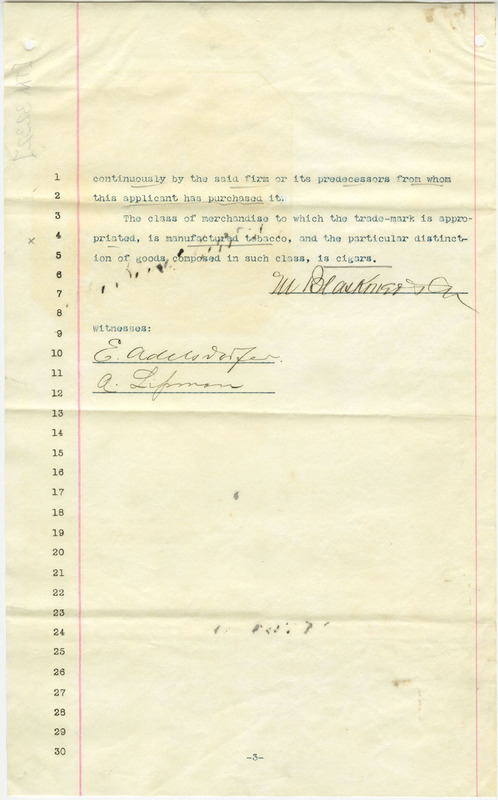 1 continuously by the said firm or its predecessors from whom
2 this applicant has purchased it.
3 The class of merchandise to which the trade-mark is appro-
x 4 priated, is manufactured tobacco, and the particular distinct-
5 ion of goods, composed in such class, is cigars.
6
7 M Blaskower & Co
8
9 Witnesses:
10 E. Adelsdorfer.
11 A. Lipman
12
13
14
15
16
17
18
19
20
21
22
23
24
25
26
27
28
29
30
-3-